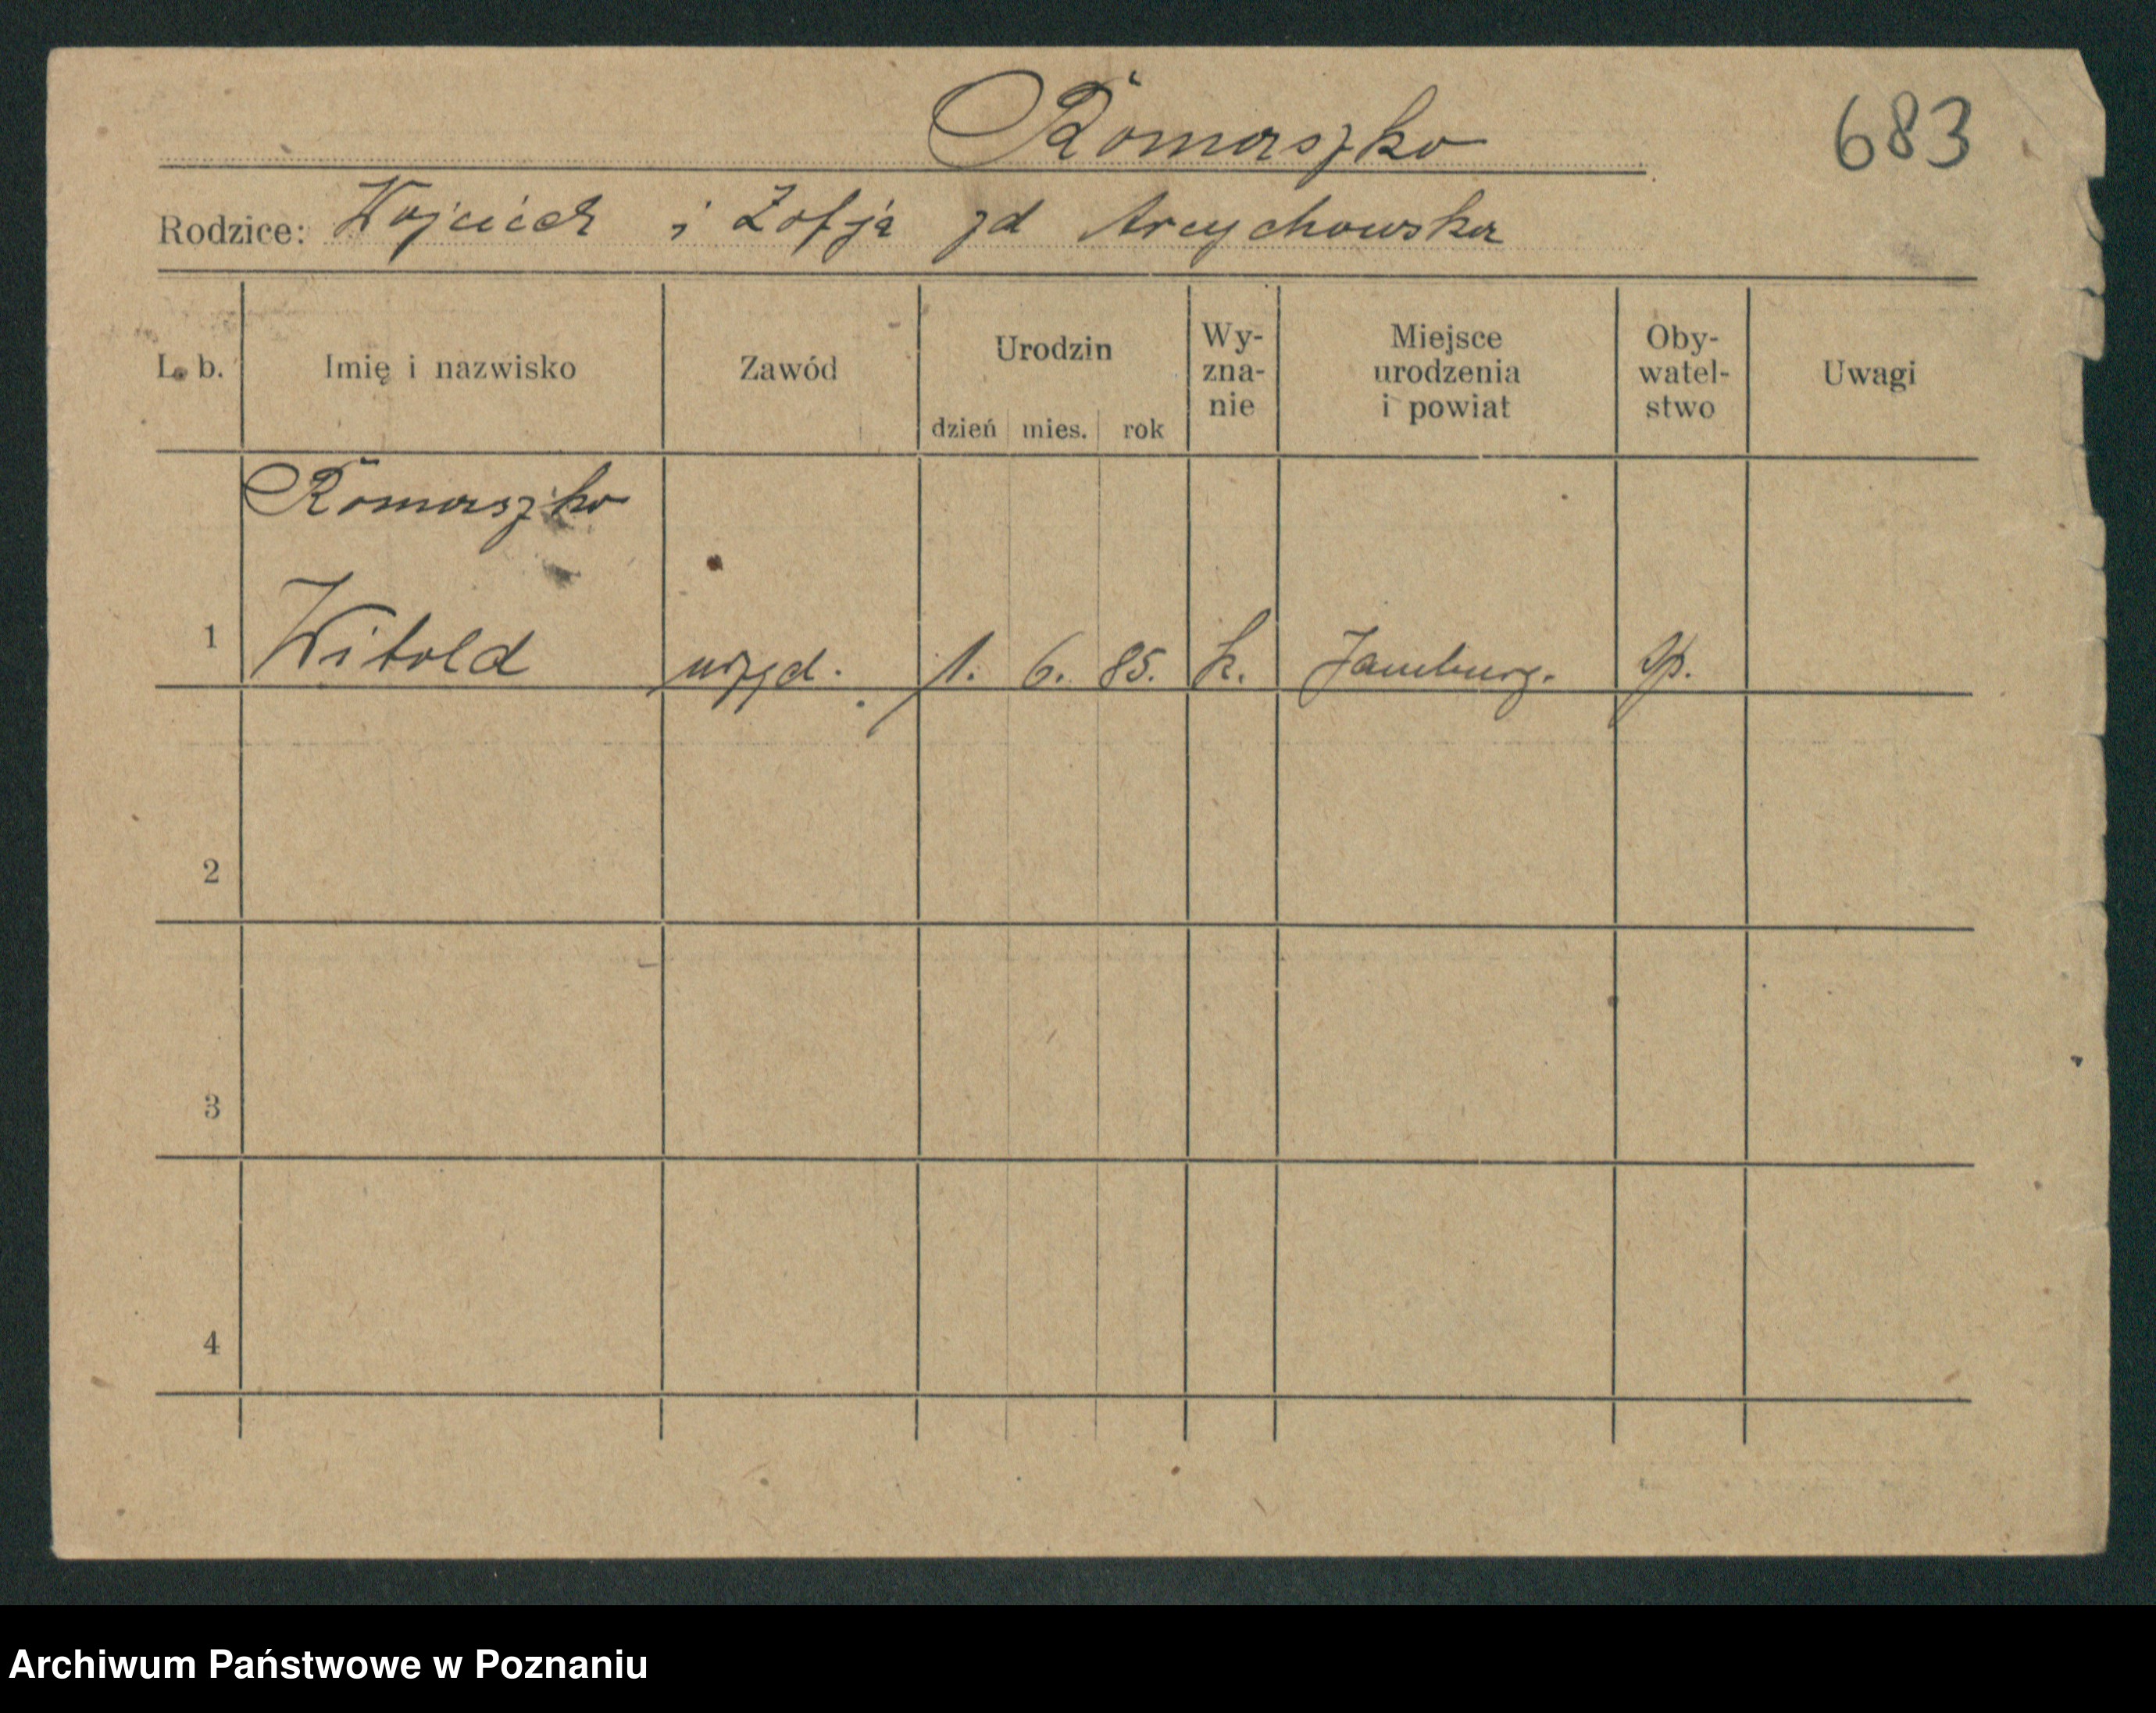 Romaszko
683
Rodzice: Wojciech i Zofja zd Arcychowska
L. b. Imię i nazwisko Zawód Urodzin dzień mies. rok Wy- zna- nie Miejsce urodzenia i powiat Oby- watel- stwo Uwagi
Romaszko
1 Witold urzęd. 1. 6. 85. k. Jamburg.
2
3
4
Archiwum Państwowe w Poznaniu